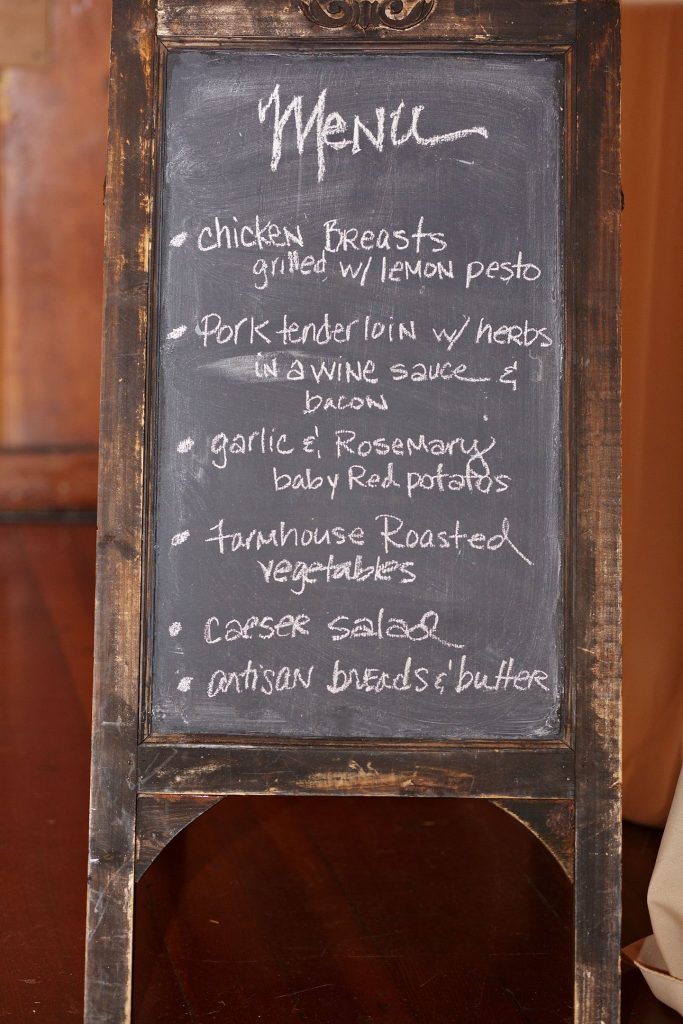 Menu
• chicken Breasts
grilled w/ lemon pesto
• Pork tenderloin w/ herbs
in a wine sauce &
bacon
• garlic & Rosemary
baby Red potatos
• Farmhouse Roasted
vegetables
• caeser salad
• artisan breads & butter